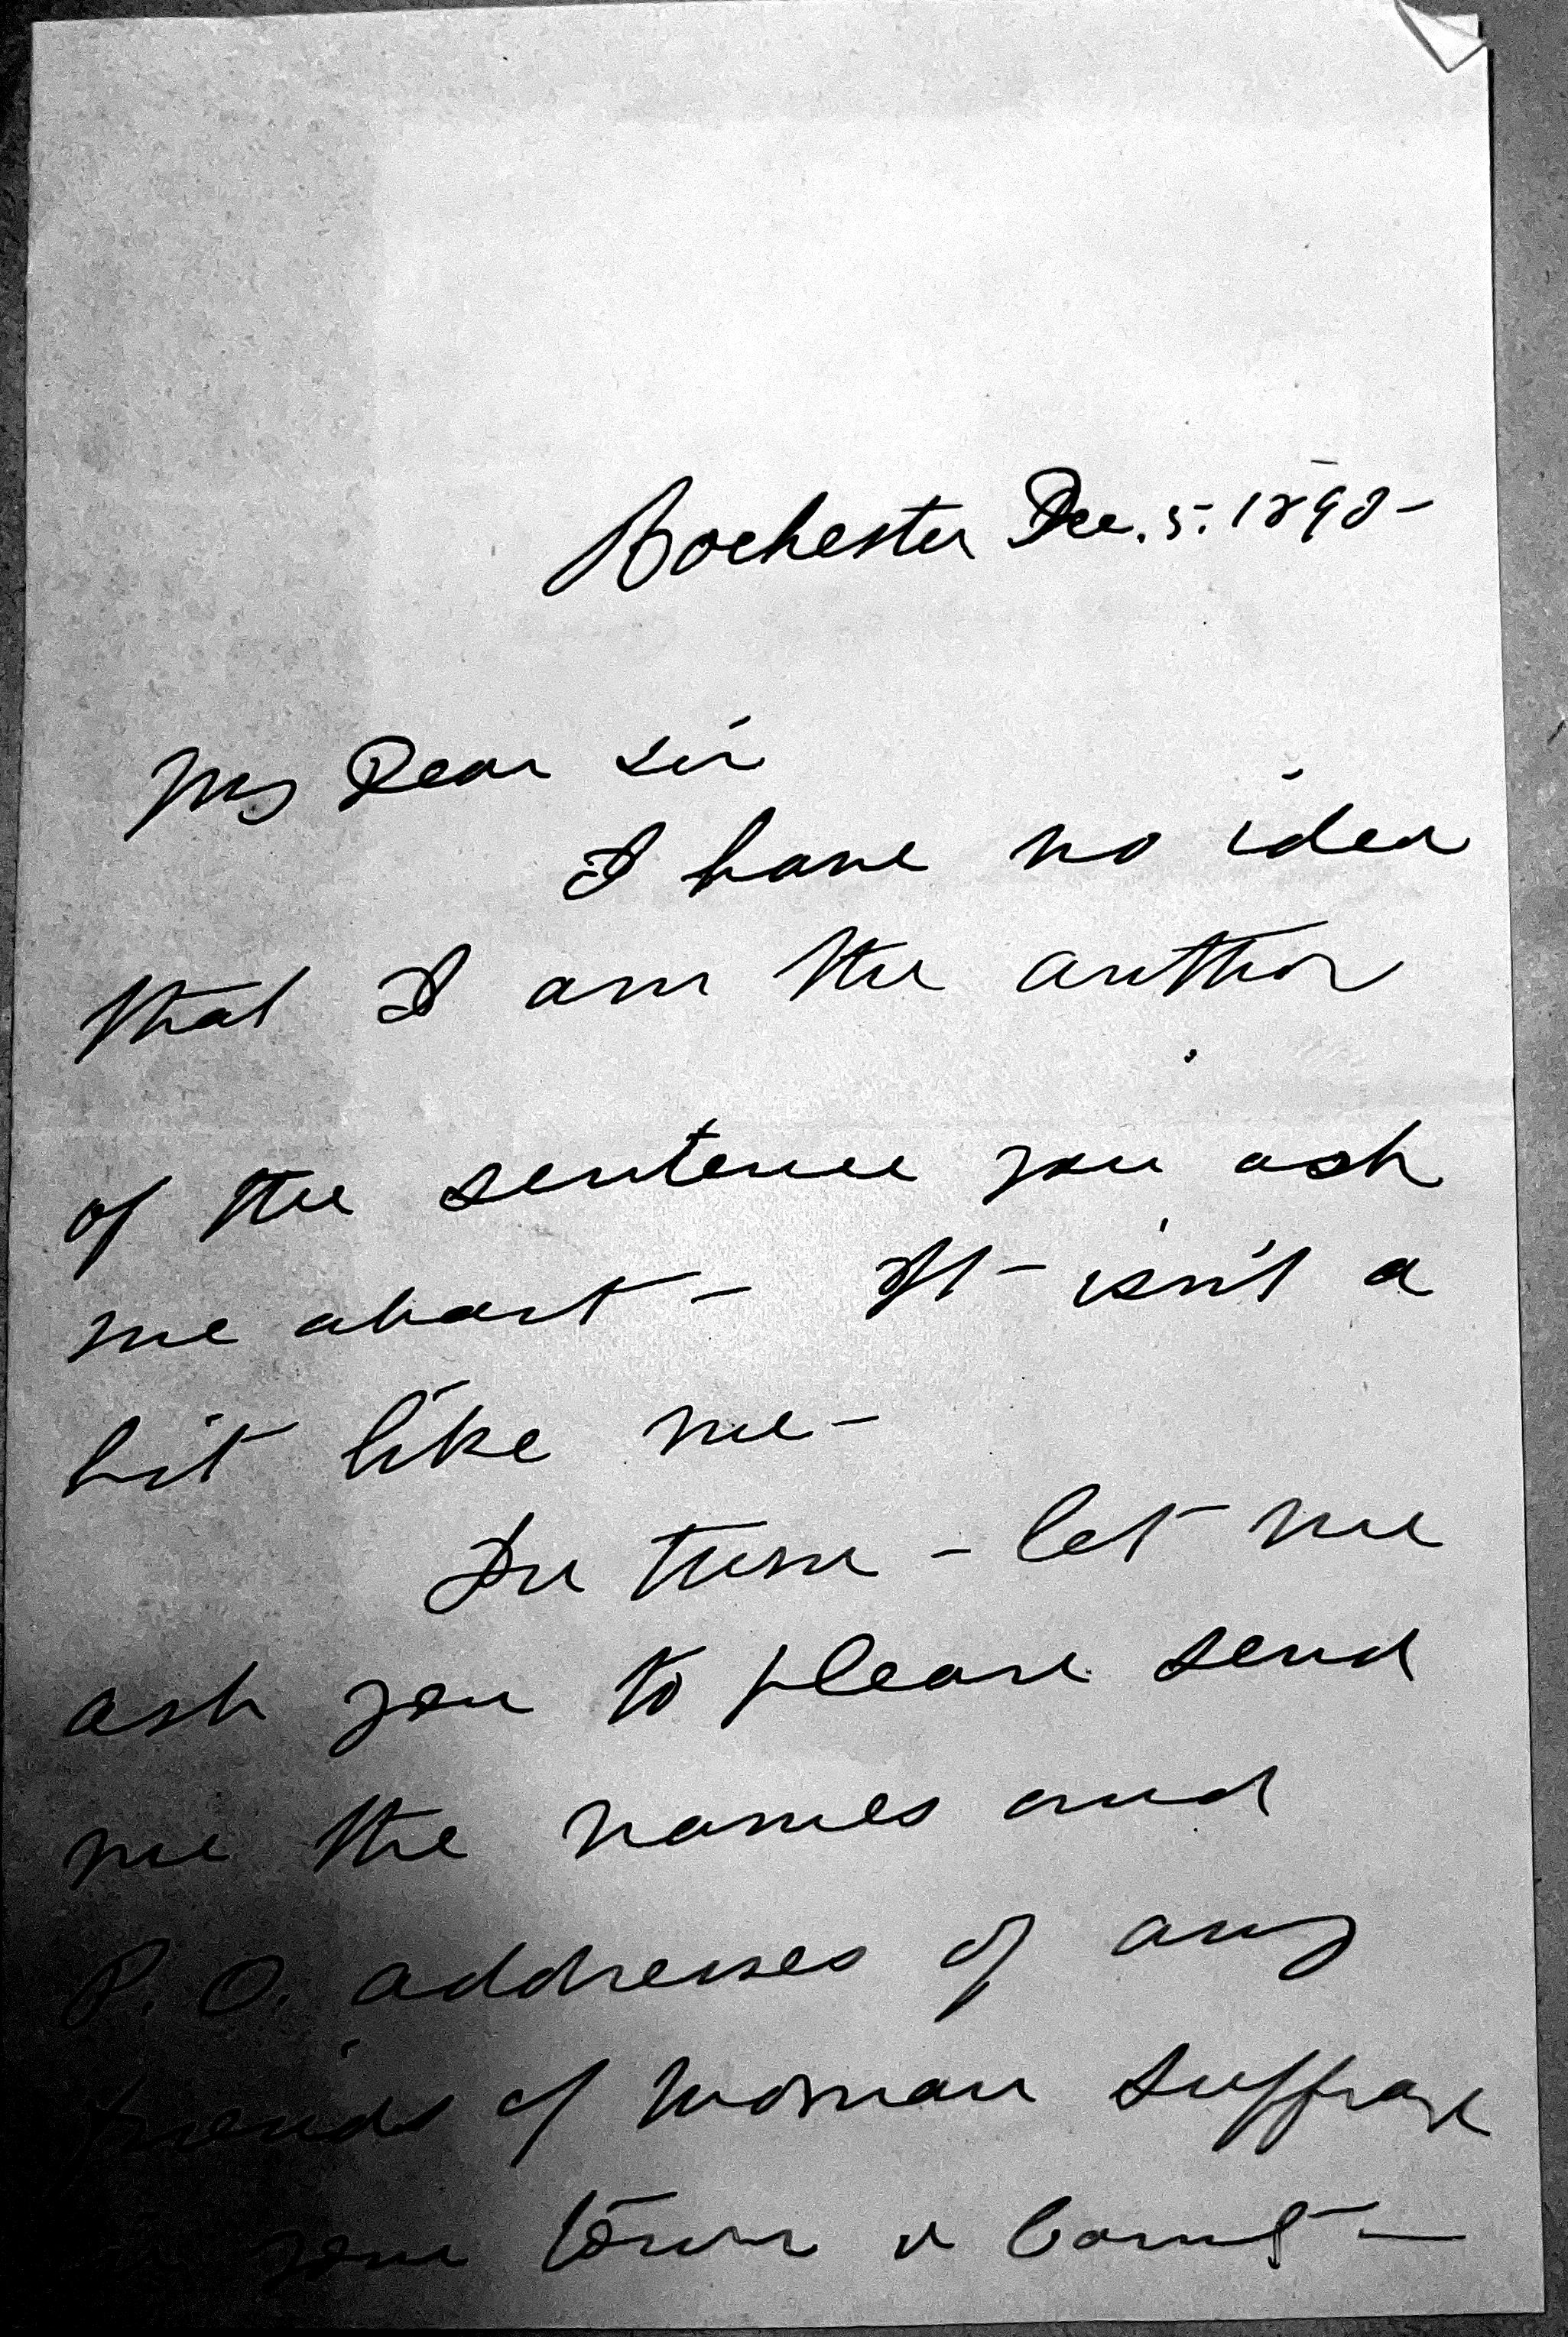 Rochester Dec. 5. 1898-
My Dear Sir
I have no idea
that I am the author
of the sentence you ask
me about - It isn't a
bit like me -
In turn - let me
ask you to please send
me the names and
P. O. addresses of any
friends of woman suffrage
in your town or County -